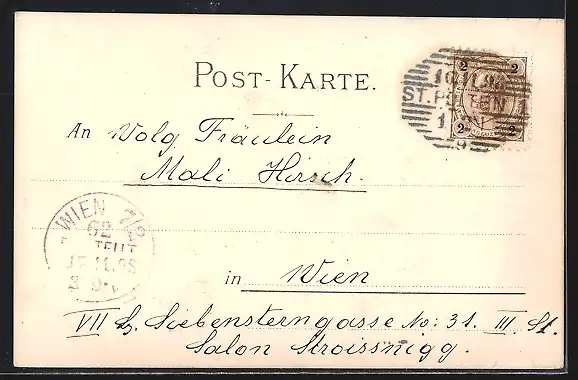 POST-KARTE.
2 2
10 11.98
ST. PÖLTEN 1
2 2
An Wolg. Fräulein
Mali Hirsch.
WIEN 7/2
62
in Wien
VII B. Siebensterngasse No: 31. III. St.
Salon Stroissnigg.